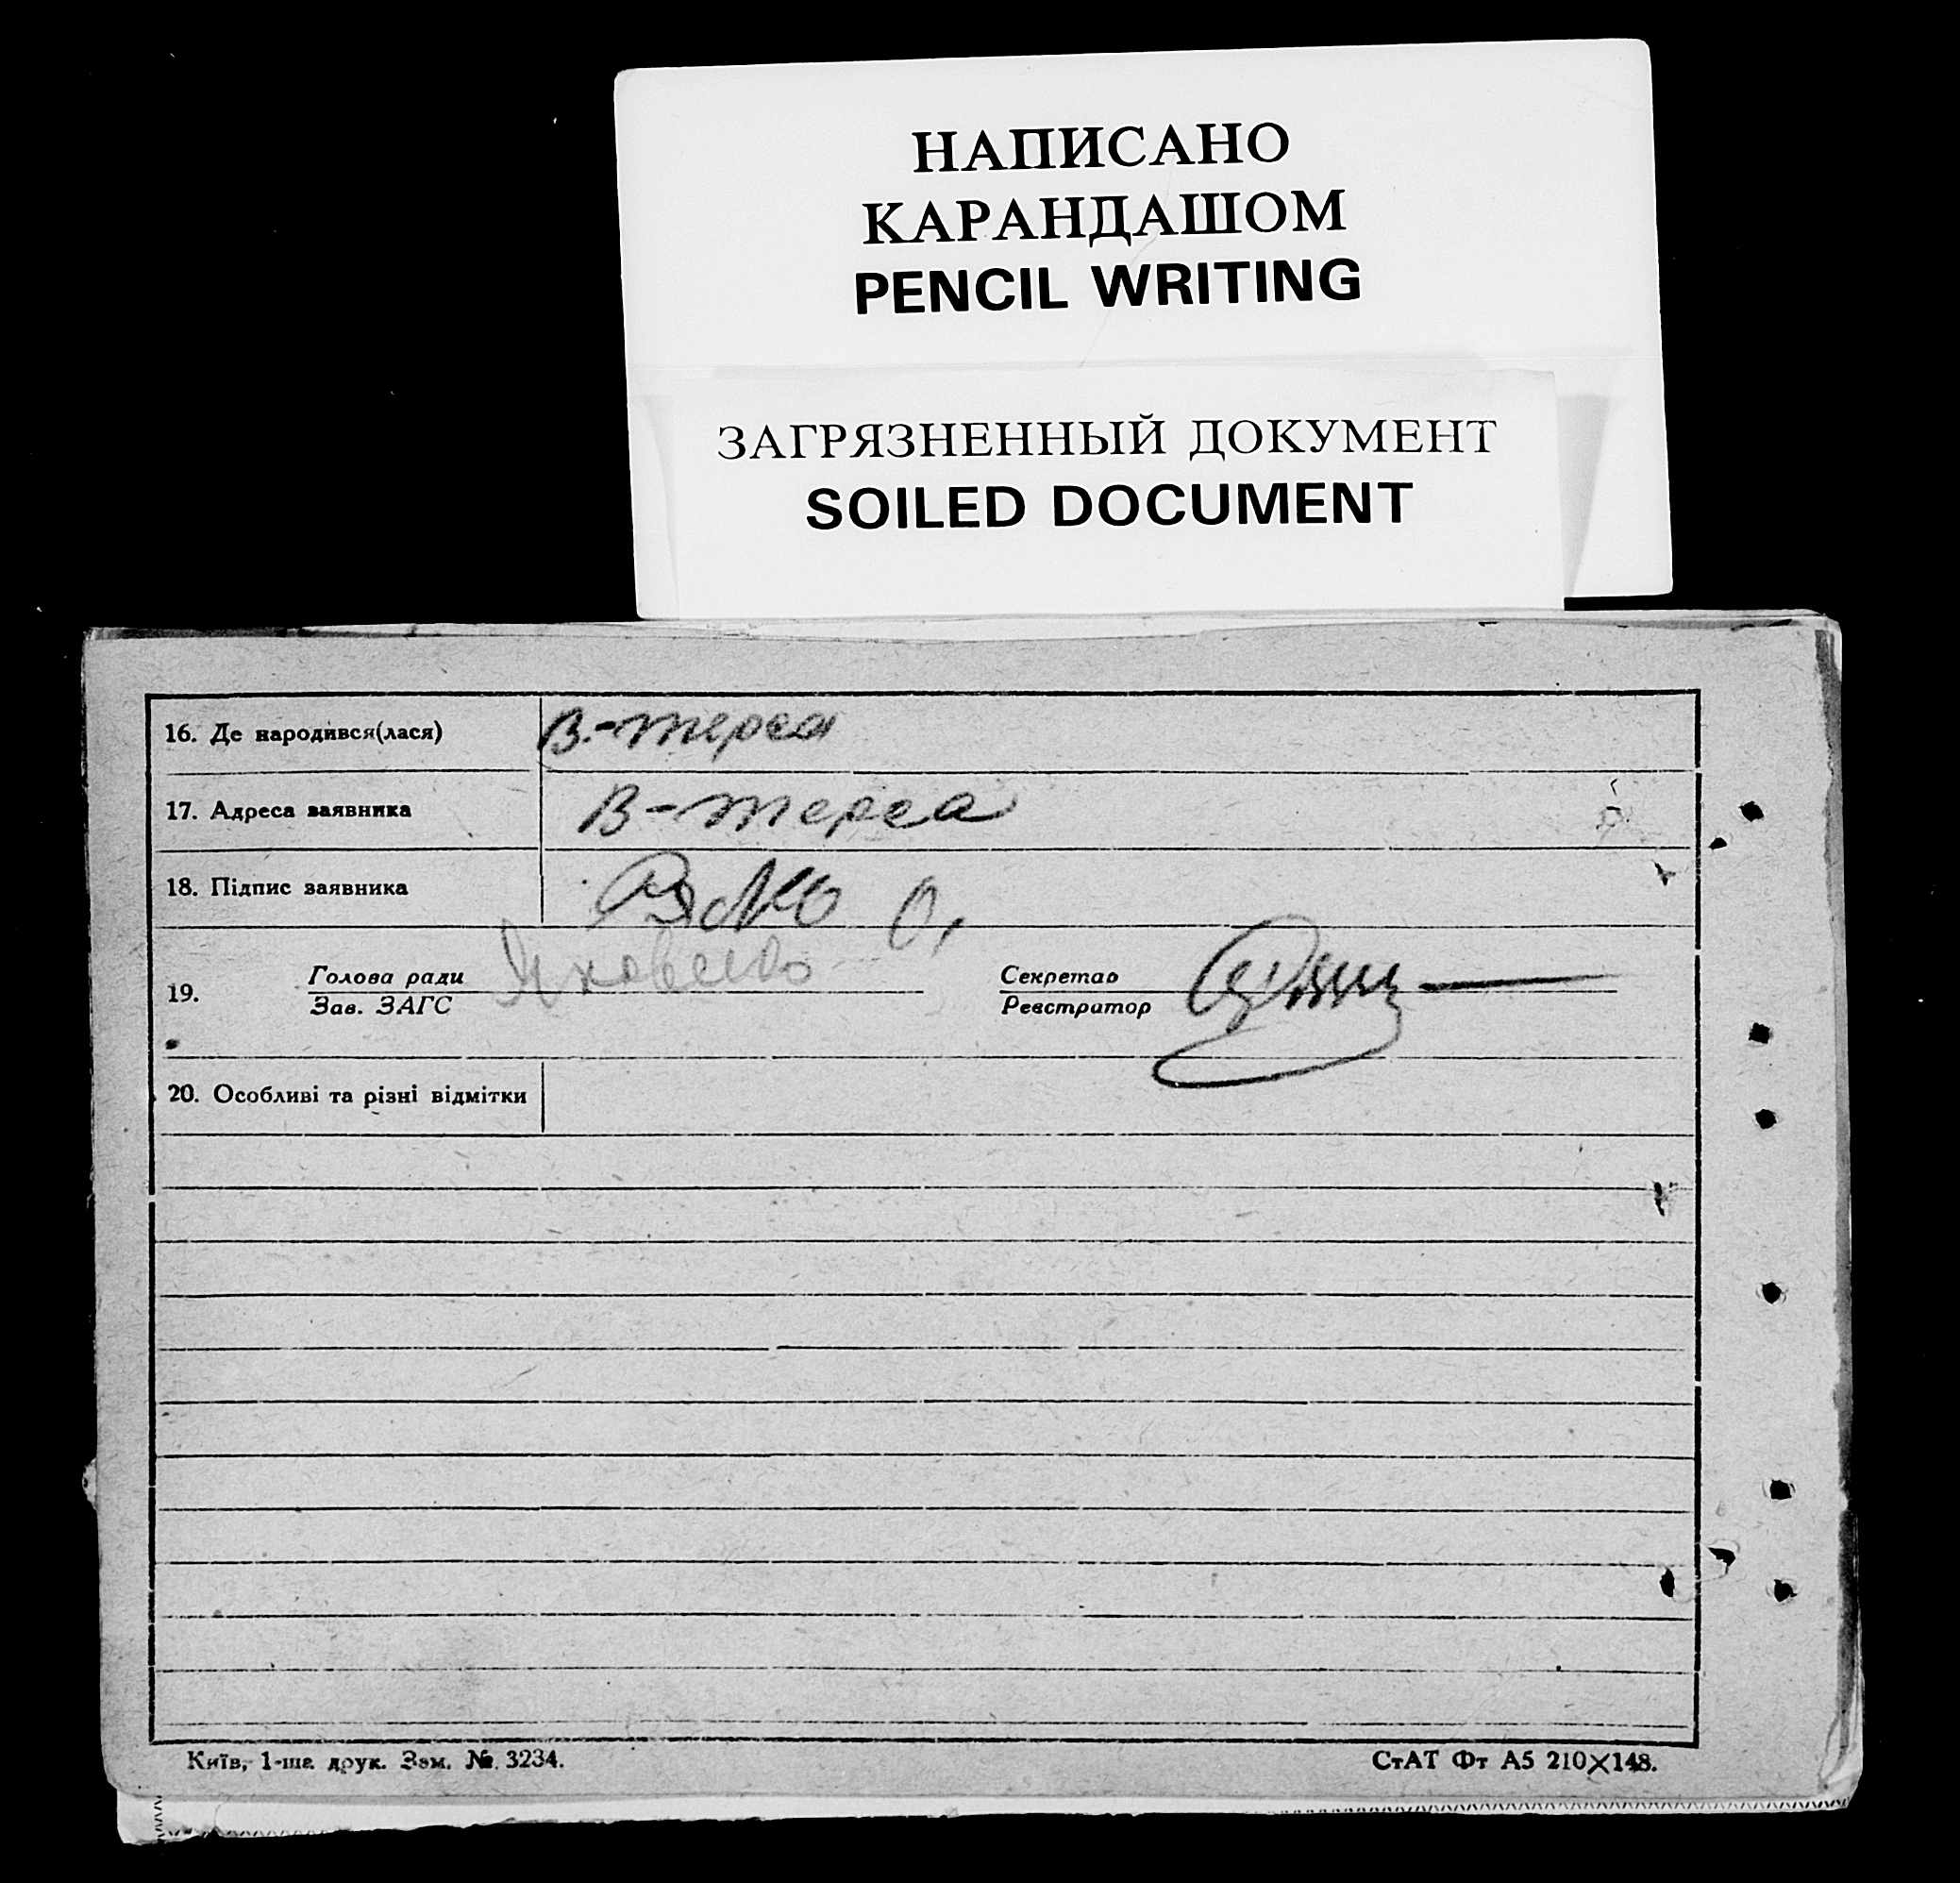 НАПИСАНО
КАРАНДАШОМ
PENCIL WRITING
ЗАГРЯЗНЕННЫЙ ДОКУМЕНТ
SOILED DOCUMENT
16. Де народився(лася) В.-терса
17. Адреса заявника В-терса
18. Підпис заявника
19. Голова ради Секретар
Зав. ЗАГС Реєстратор
20. Особливі та різні відмітки
Київ, 1-ша друк. Зам. № 3234. СтАТ Фт А5 210×148.